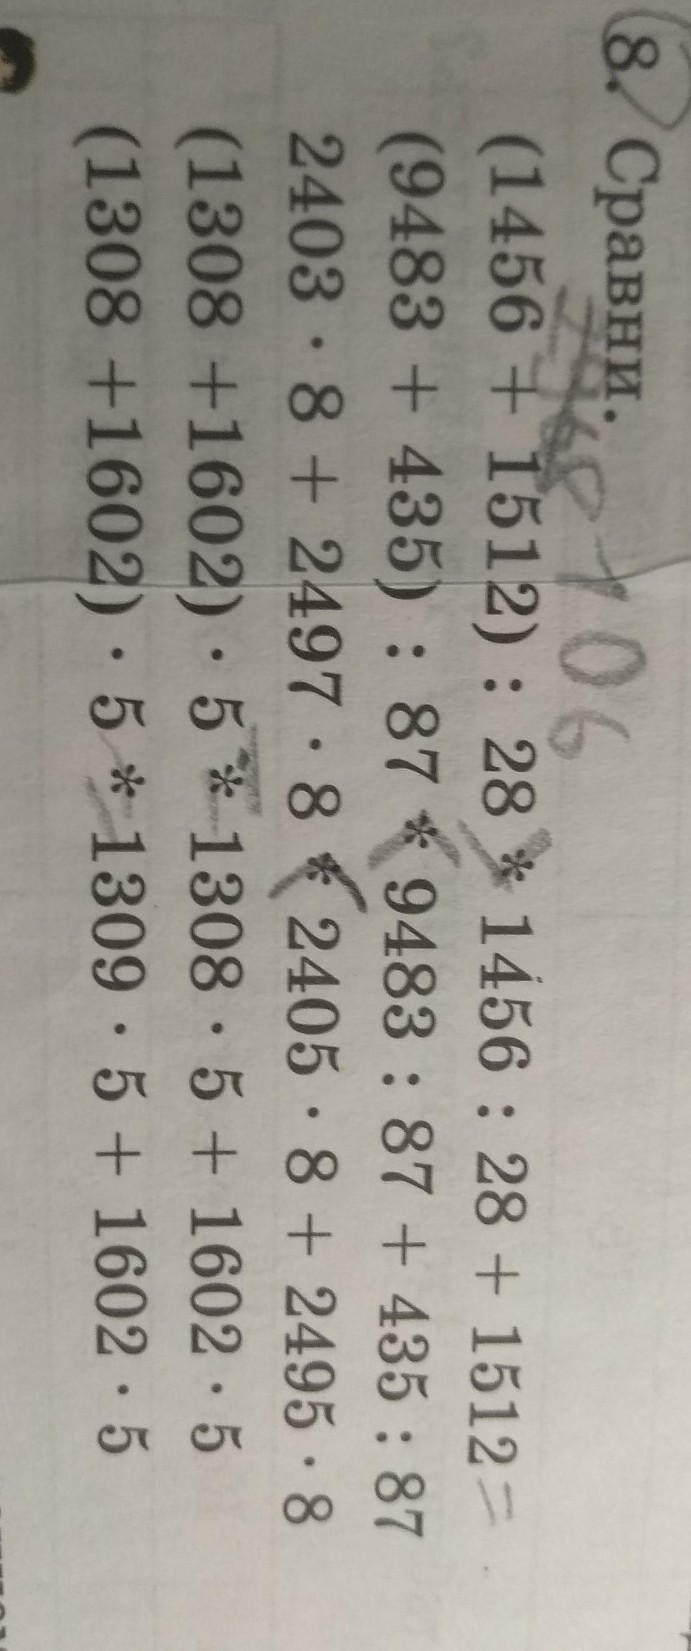 8. Сравни.
(1456 + 1512) : 28 * 1456 : 28 + 1512 =
(9483 + 435) : 87 * 9483 : 87 + 435 : 87
2403 · 8 + 2497 · 8 * 2405 · 8 + 2495 · 8
(1308 +1602) · 5 * 1308 · 5 + 1602 · 5
(1308 +1602) · 5 * 1309 · 5 + 1602 · 5